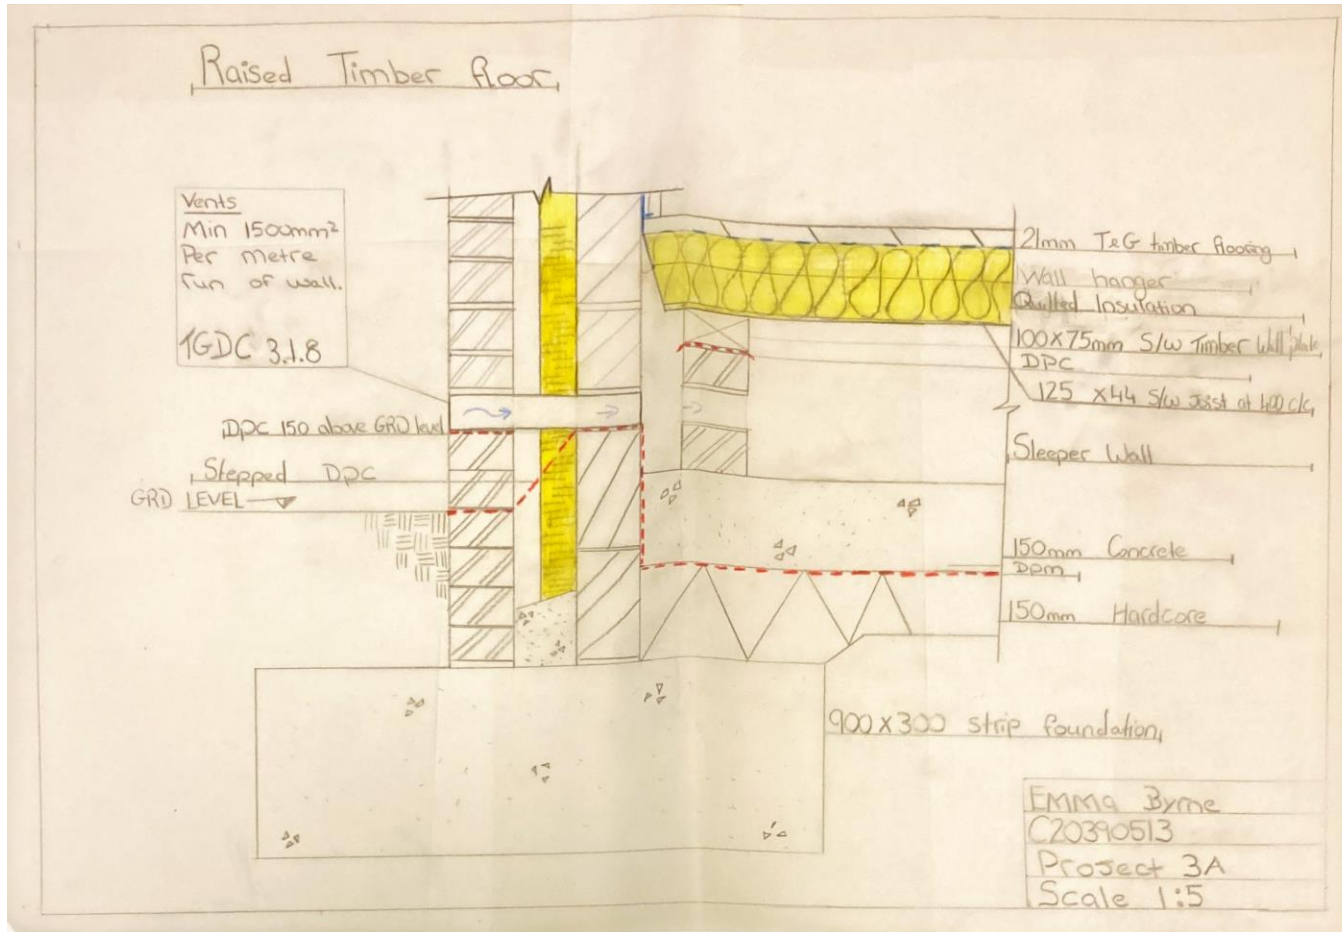 Raised Timber floor
Vents
Min 1500mm²
Per metre
run of wall.
TGDC 3.1.8
DPC 150 above GRD level
Stepped DPC
GRD LEVEL
21mm T&G timber flooring
Wall hanger
Quilted Insulation
100X75mm S/W Timber Wall plate
DPC
125 X44 S/W Joist at 400 c/c
Sleeper Wall
150mm Concrete
DPM
150mm Hardcore
900X300 strip foundation
EMMA Byrne
C20390513
Project 3A
Scale 1:5